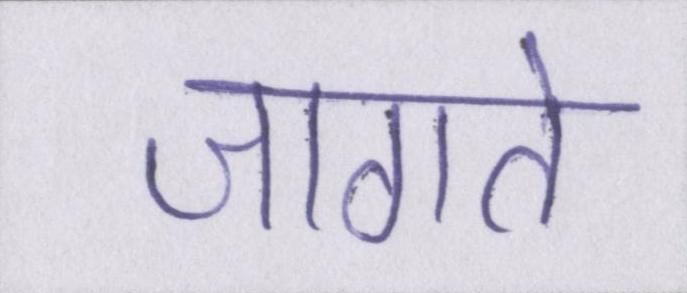 जागते